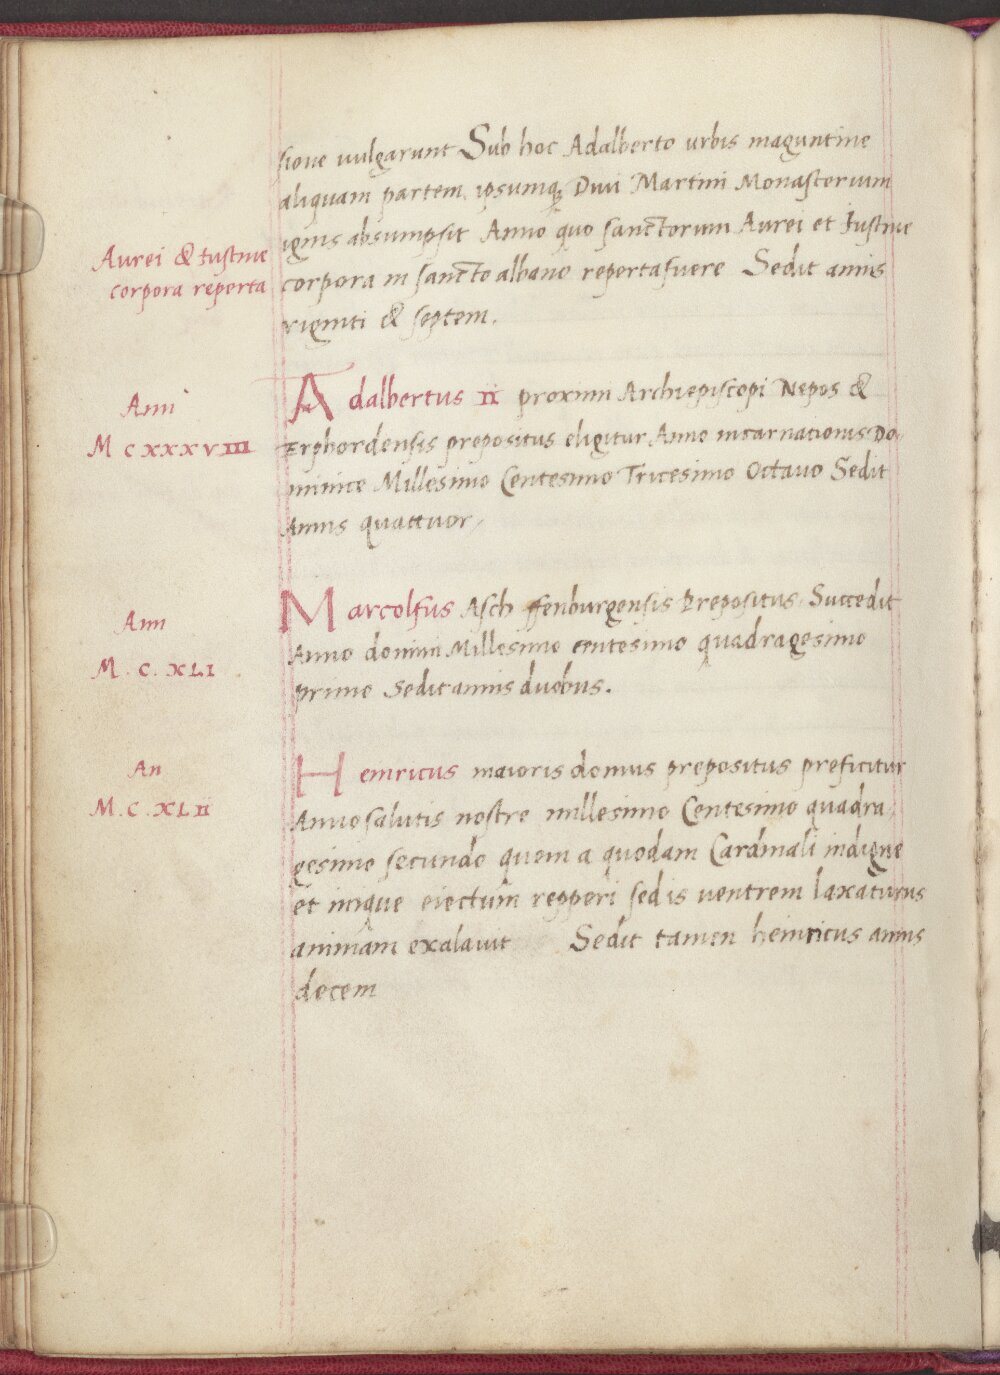 sione uulgarunt Sub hoc Adalberto urbis maguntine
aliquam partem, ipsumq; Diui Martini Monasterium
ignis absumpsit Anno quo sanctorum Aurei et Iustine
Aurei & Iustine
corpora reperta
corpora in sancto albano reperta fuere Sedit annis
viginti & septem.
Anni
M C XXX V III
Adalbertus II proximi Archiepiscopi Nepos &
Erphordensis prepositus eligitur Anno incarnationis Do-
minice Millesimo Centesimo Tricesimo Octauo Sedit
Annis quattuor
Ann
M. C. XLI
Marcolfus Aschffenburgensis Prepositus Succedit
Anno domini Millesimo centesimo quadragesimo
primo Sedit annis duobus.
An
M. C. XL II
Heinricus maioris domus prepositus preficitur
Anno salutis nostre millesimo Centesimo quadra
gesimo secundo quem a quodam Cardinali indigne
et inique eiectum repperi sed is uentrem laxaturus
animam exalauit Sedit tamen heinricus annis
decem